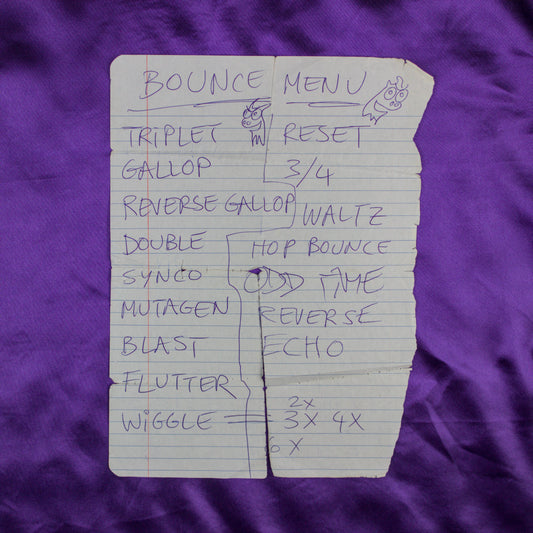 BOUNCE MENU
TRIPLET
GALLOP
REVERSE GALLOP
DOUBLE
SYNCO
MUTAGEN
BLAST
FLUTTER
WIGGLE
RESET
3/4
WALTZ
HOP BOUNCE
ODD TIME
REVERSE
ECHO
2X
3X 4X
6X